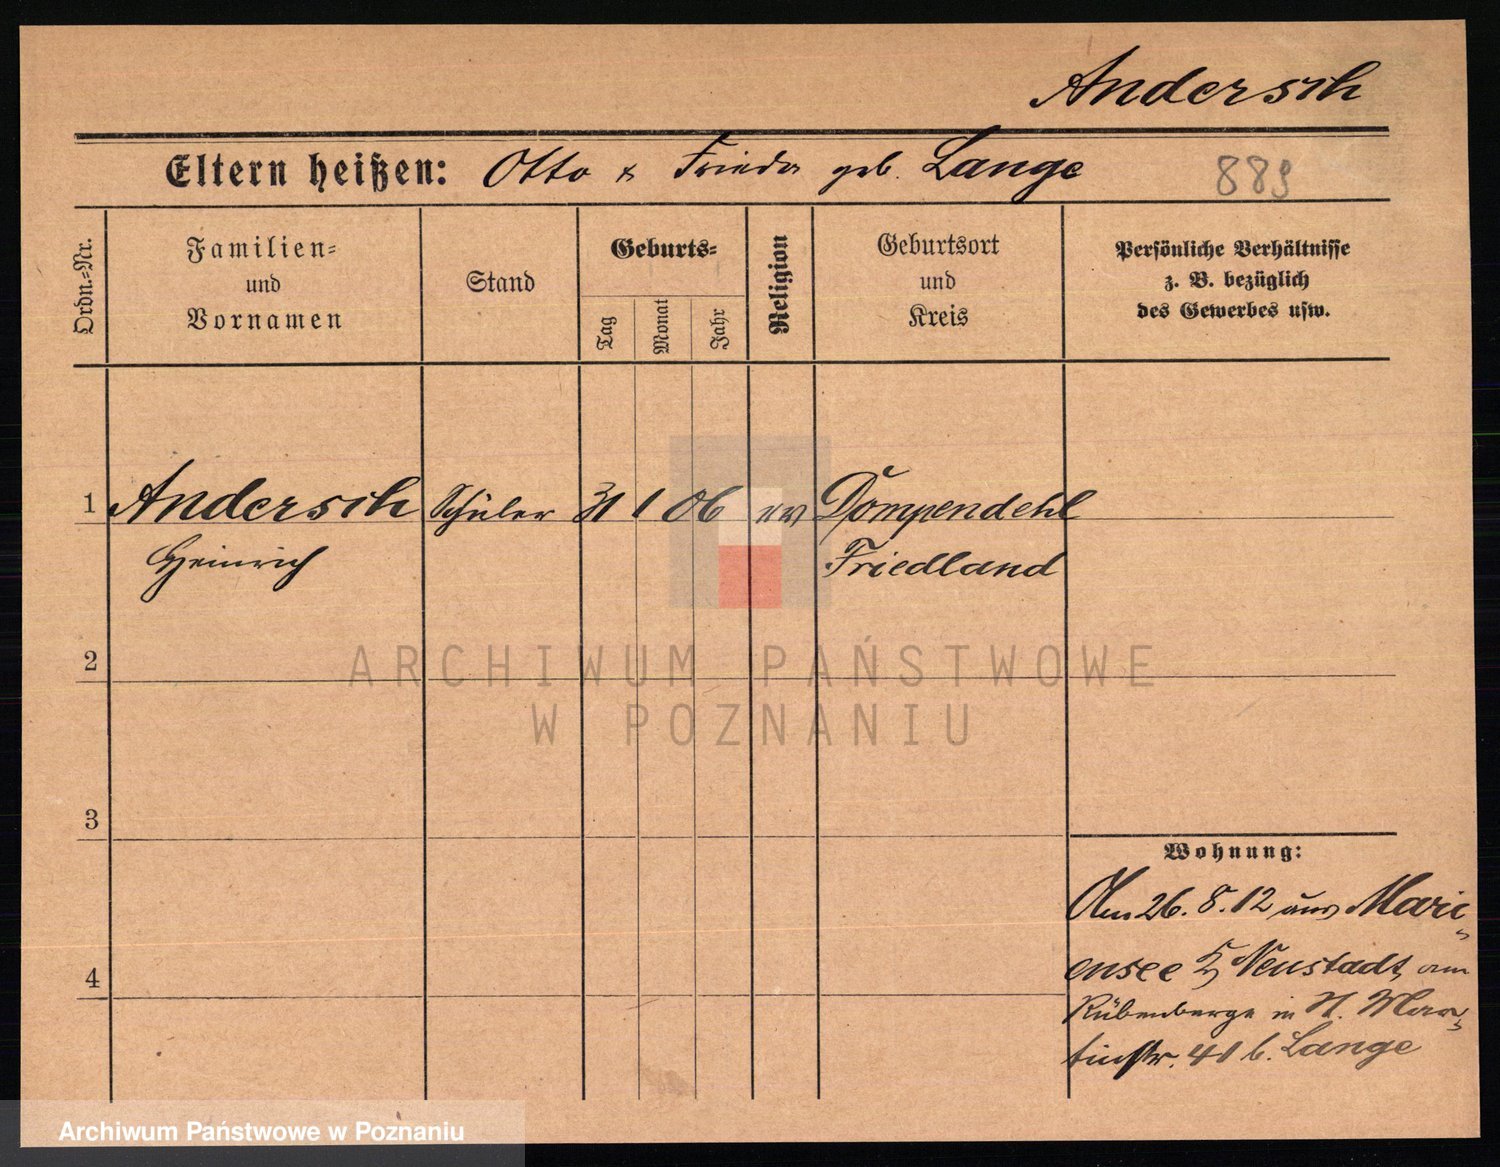 Andersch
Eltern heißen: Otto & Frieda geb. Lange 889
Ordn.-Nr.
Familien-
und
Vornamen
Stand
Geburts-
Tag
Monat
Jahr
Religion
Geburtsort
und
Kreis
Persönliche Verhältnisse
z. B. bezüglich
des Gewerbes usw.
1 Andersch Schüler 31 1 06 ev Dompendehl
Heinrich Friedland
2
ARCHIWUM PAŃSTWOWE
W POZNANIU
3
Wohnung:
Am 26. 8. 12 aus Mari
ensee Kr Neustadt am
4
Rübenberge in St. Mar-
tinstr. 41 b. Lange
Archiwum Państwowe w Poznaniu